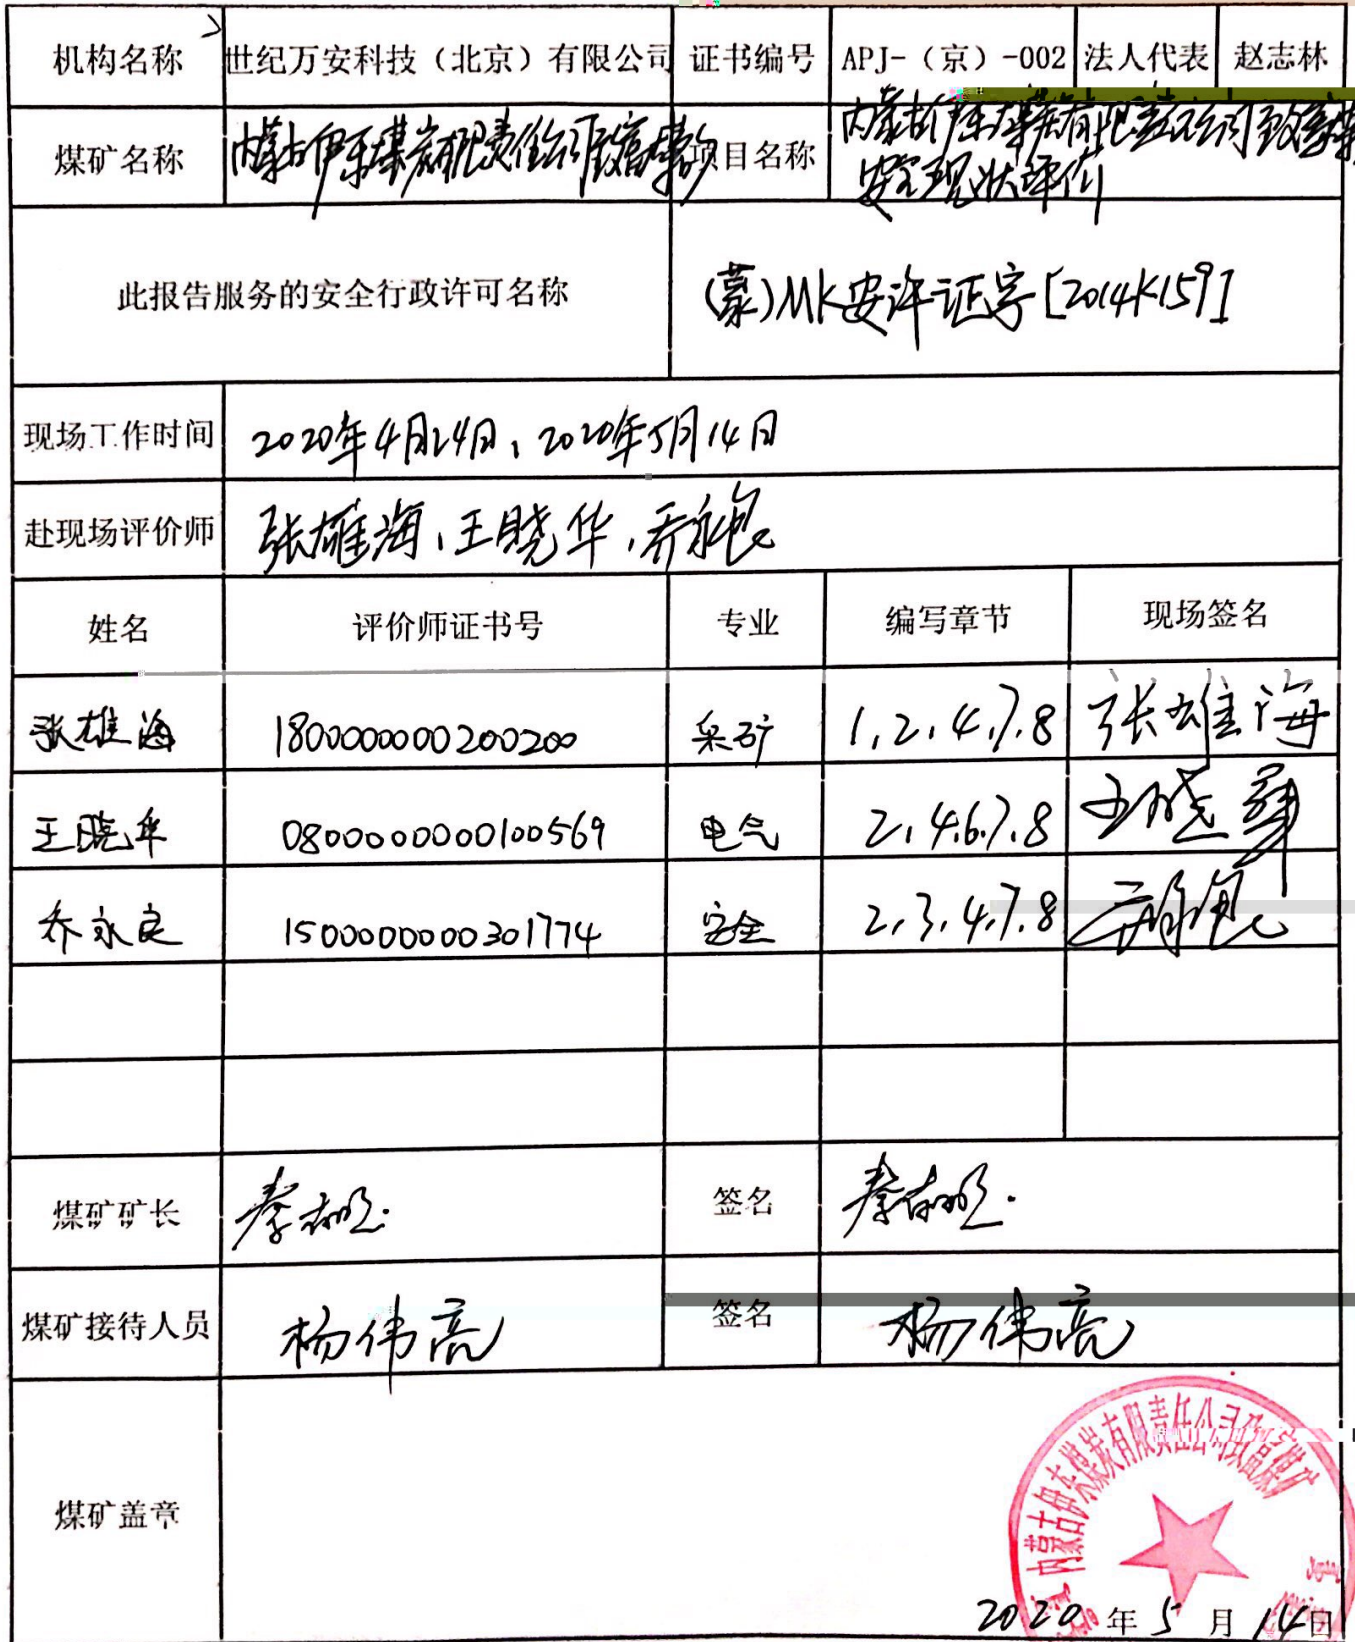 机构名称 世纪万安科技（北京）有限公司 证书编号 APJ-（京）-002 法人代表 赵志林
煤矿名称 内蒙古伊东煤炭有限责任公司致富煤矿 项目名称 内蒙古伊东煤炭有限责任公司致富煤矿
安全现状评价
此报告服务的安全行政许可名称 (蒙)MK安许证字[2014K159]
现场工作时间 2020年4月24日、2020年5月14日
赴现场评价师 张雄海、王晓华、乔永良
姓名 评价师证书号 专业 编写章节 现场签名
张雄海 1800000000200200 采矿 1.2.4.7.8 张雄海
王晓华 0800000000100569 电气 2.4.6.7.8 王晓华
乔永良 1500000000301774 安全 2.3.4.7.8 乔永良
煤矿矿长 签名
煤矿接待人员 杨伟亮 签名 杨伟亮
煤矿盖章
内蒙古伊东煤炭有限责任公司致富煤矿
2020年5月14日